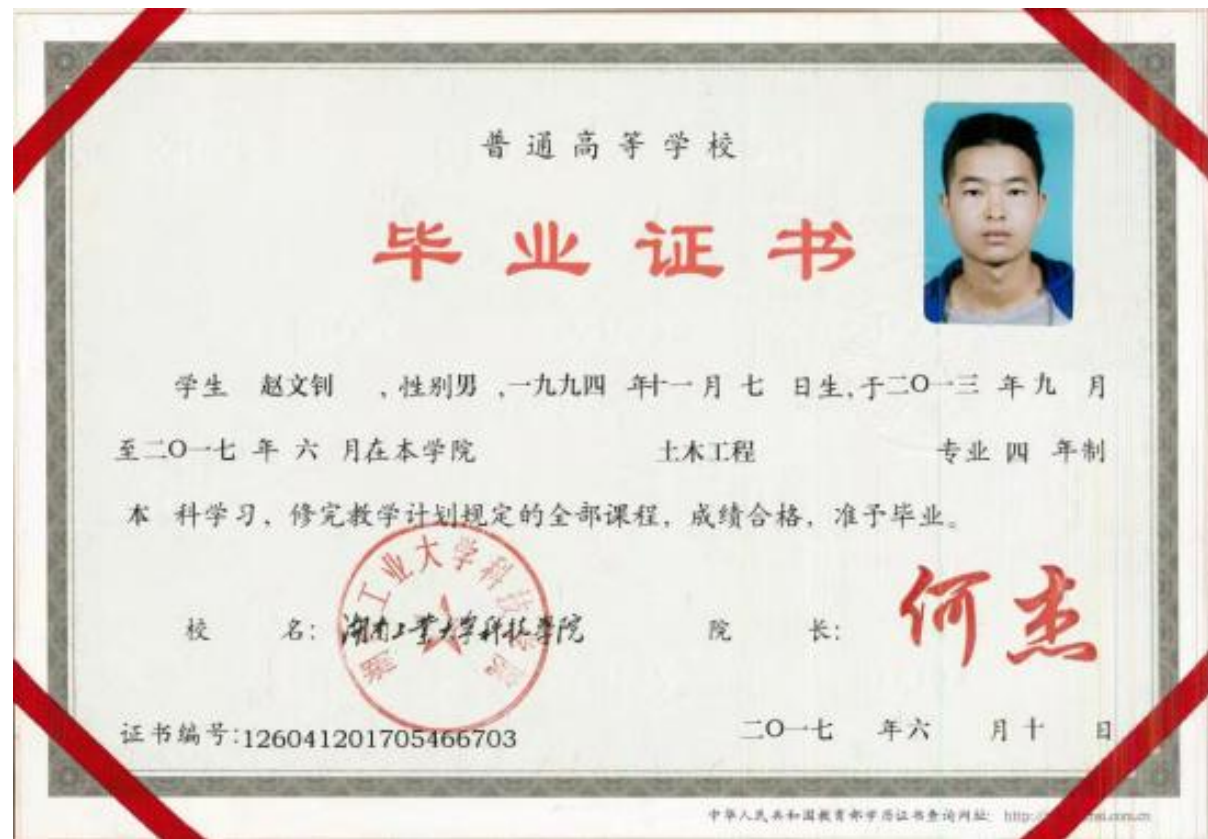 普通高等学校
毕业证书
学生 赵文钊 ,性别男 ,一九九四 年十一月 七 日生,于二〇一三 年九 月
至二〇一七 年 六 月在本学院 土木工程 专业 四 年制
本 科学习, 修完教学计划规定的全部课程, 成绩合格, 准予毕业。
工业大学科技
校 名: 湖南工业大学科技学院 院 长: 何杰
证书编号:126041201705466703 二〇一七 年六 月十 日
中华人民共和国教育部学历证书查询网址: http: